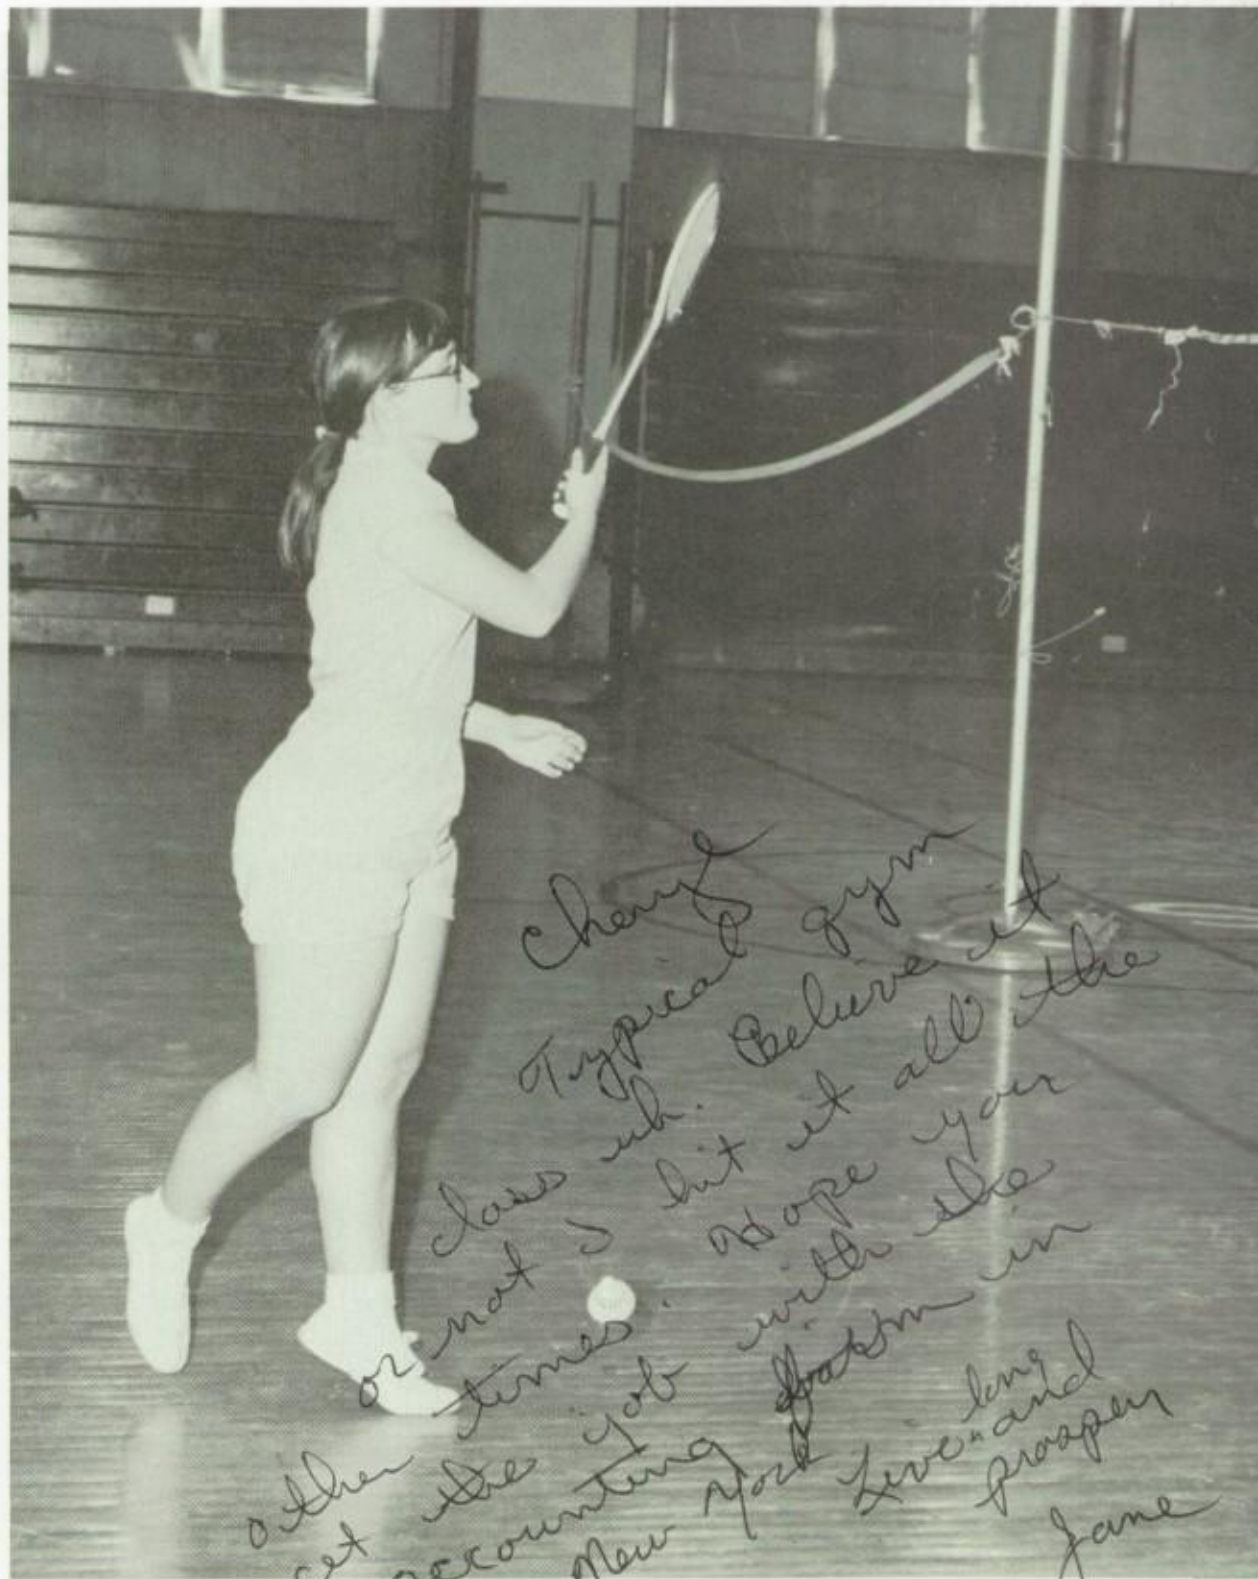 Cheryl
Typical gym
class uh. Believe it
or not I hit it all the
other times. Hope you
get the job with the
accounting firm in
New York Live long and
prosper
Jane